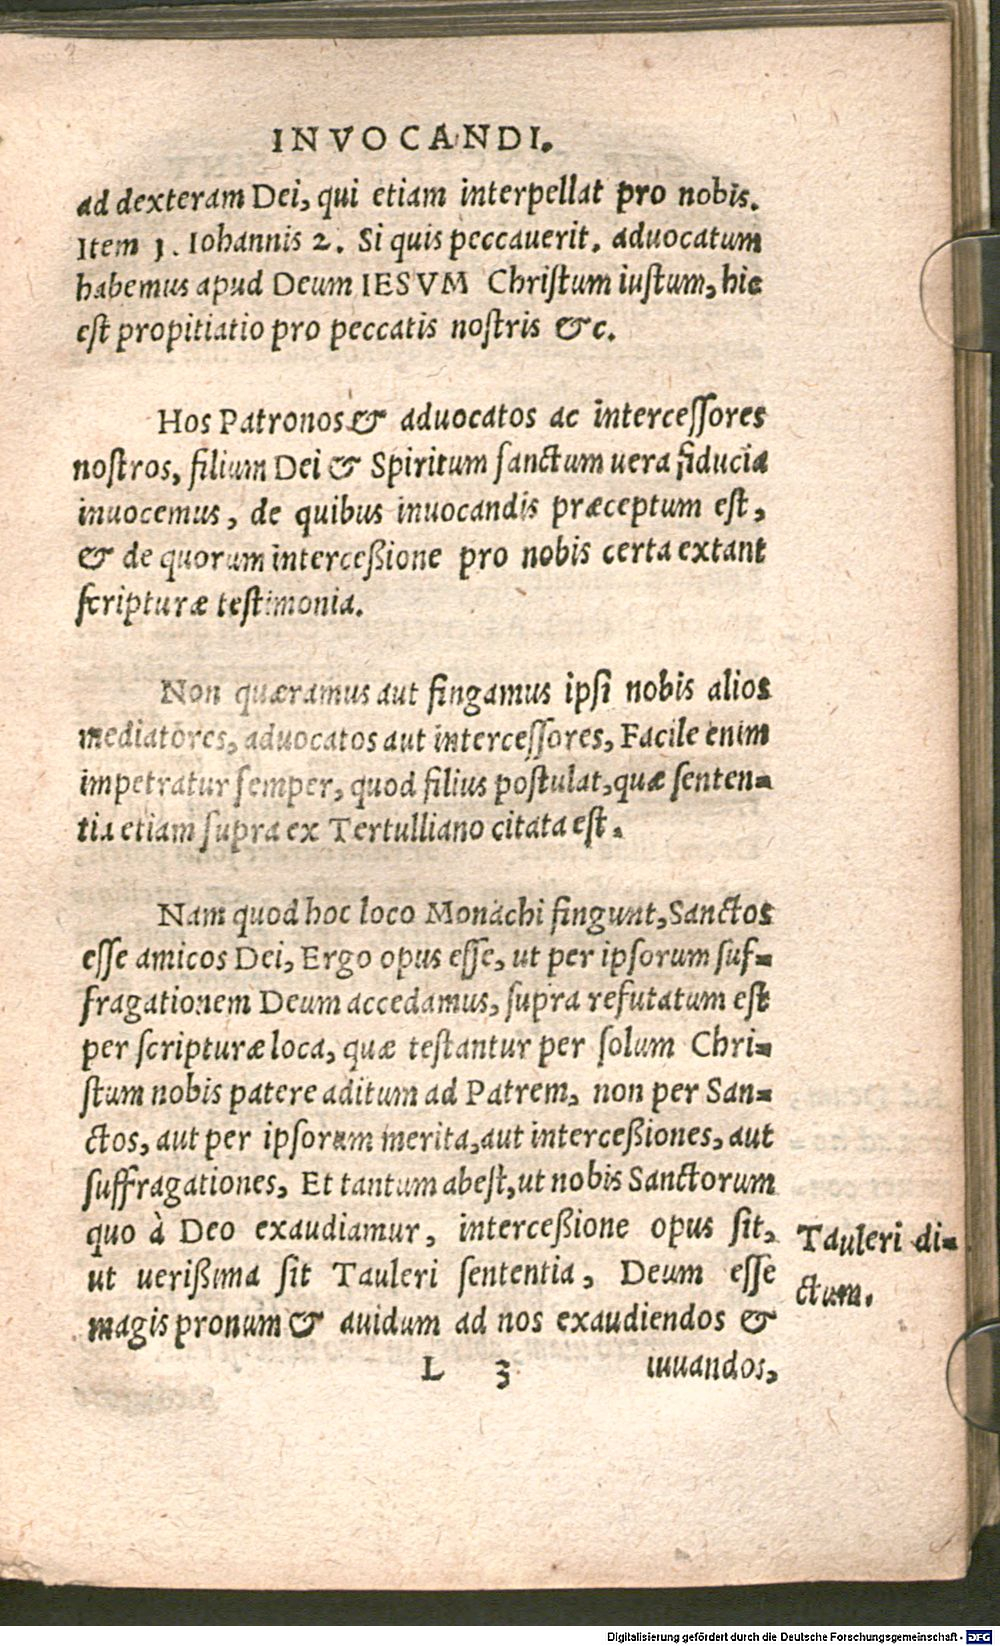 INVOCANDI.
ad dexteram Dei, qui etiam interpellat pro nobis.
Item 1. Iohannis 2. Si quis peccauerit, aduocatum
habemus apud Deum IESVM Christum iustum, hic
est propitiatio pro peccatis nostris &c.
Hos Patronos & aduocatos ac intercessores
nostros, filium Dei & Spiritum sanctum uera fiducia
inuocemus, de quibus inuocandis præceptum est,
& de quorum interceßione pro nobis certa extant
scripturæ testimonia.
Non quæramus aut fingamus ipsi nobis alios
mediatores, aduocatos aut intercessores, Facile enim
impetratur semper, quod filius postulat, quæ senten=
tia etiam supra ex Tertulliano citata est.
Nam quod hoc loco Monachi fingunt, Sanctos
esse amicos Dei, Ergo opus esse, ut per ipsorum suf=
fragationem Deum accedamus, supra refutatum est
per scripturæ loca, quæ testantur per solum Chri=
stum nobis patere aditum ad Patrem, non per San=
ctos, aut per ipsorum merita, aut interceßiones, aut
suffragationes, Et tantum abest, ut nobis Sanctorum
quo à Deo exaudiamur, interceßione opus sit,
ut uerißima sit Tauleri sententia, Deum esse
magis pronum & auidum ad nos exaudiendos &
Tauleri di=
ctum.
L 3 iuuandos,
Digitalisierung gefördert durch die Deutsche Forschungsgemeinschaft - DFG